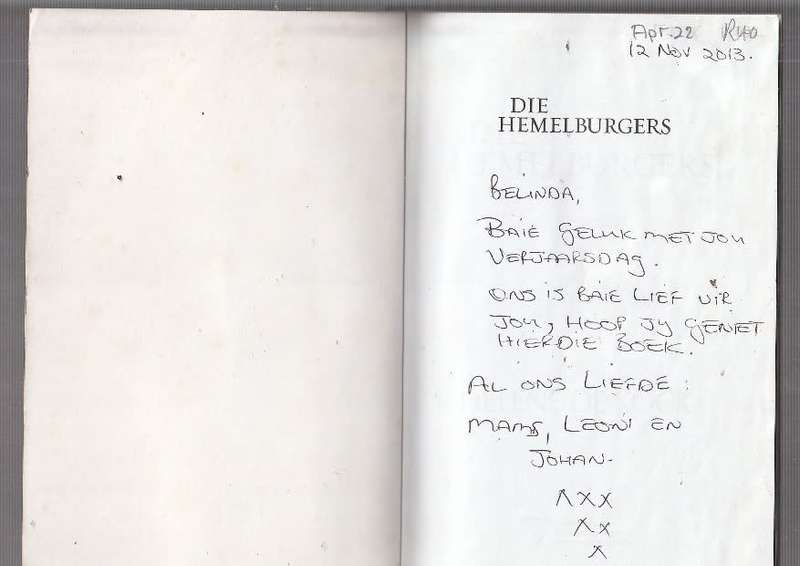 Apr. 22 R40
12 Nov 2013.
DIE
HEMELBURGERS
BELINDA,
BAIE GELUK MET JOU
VERJAARSDAG.
ONS IS BAIE LIEF VIR
JOU, HOOP JY GENIET
HIERDIE BOEK.
AL ONS LIEFDE:
MAMS, LEONI EN
JOHAN-
XXX
XX
X